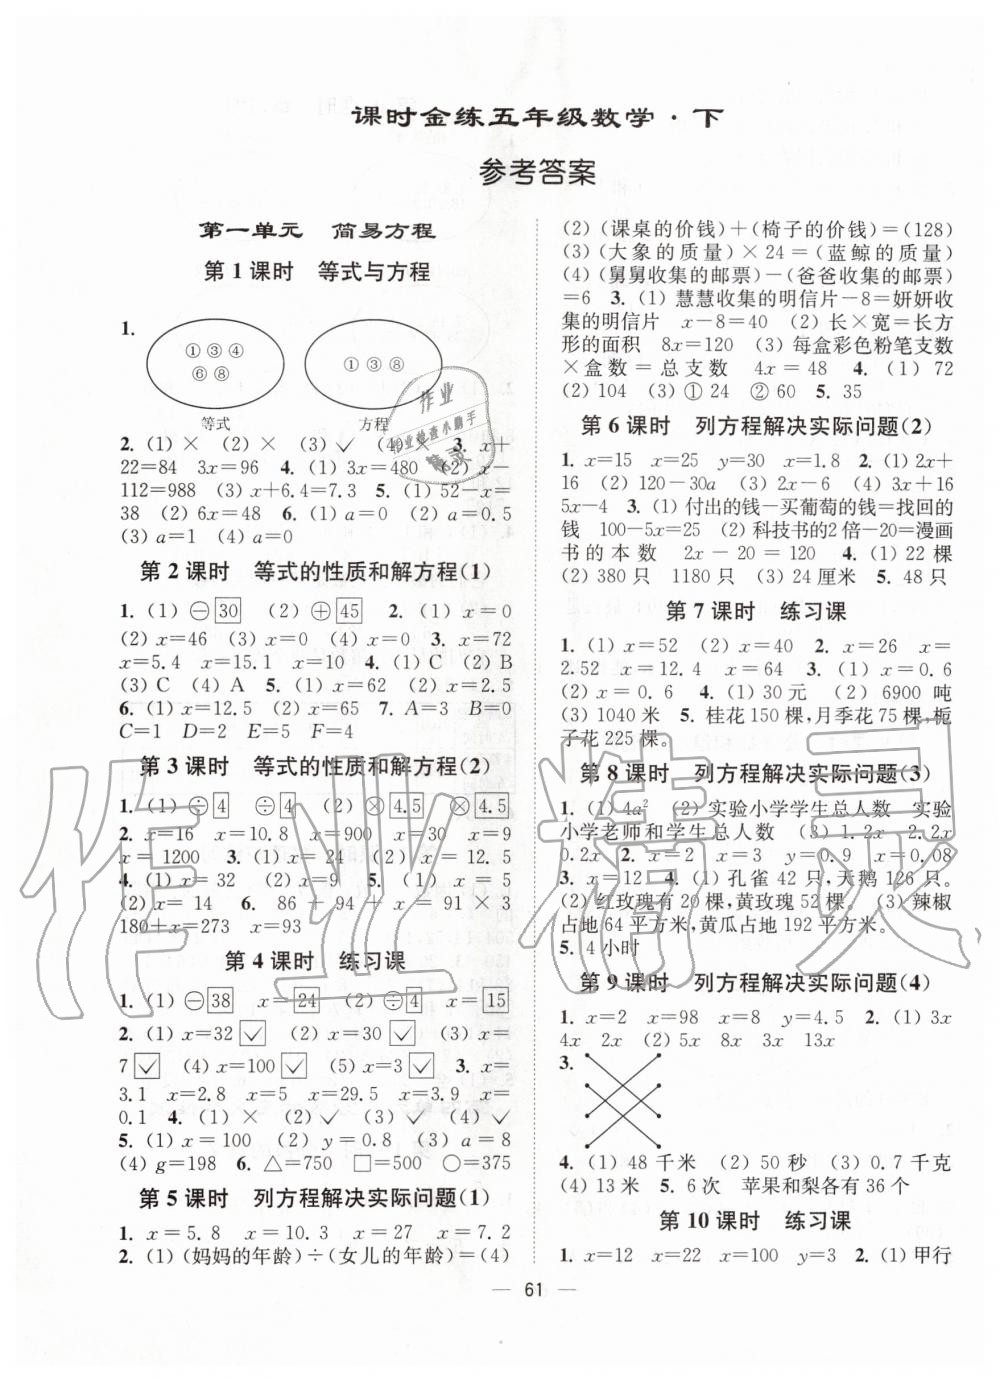 课时金练五年级数学·下
参考答案
第一单元　简易方程
第1课时　等式与方程
1.
①③④　①③⑧
⑥⑧
等式　方程
2. (1)×　(2)×　(3)✓　(4)×　3. x+
22=84　3x=96　4. (1)3x=480　(2)x-
112=988　(3)x+6.4=7.3　5. (1)52-x=
38　(2)6x=48　6. (1)a=0　(2)a=0.5
(3)a=1　(4)a=0
第2课时　等式的性质和解方程(1)
1. (1)⊖30　(2)⊕45　2. (1)x=0
(2)x=46　(3)x=0　(4)x=0　3. x=72
x=5.4　x=15.1　x=10　4. (1)C　(2)B
(3)C　(4)A　5. (1)x=62　(2)x=2.5
6. (1)x=12.5　(2)x=65　7. A=3　B=0
C=1　D=2　E=5　F=4
第3课时　等式的性质和解方程(2)
1. (1)÷4　÷4　(2)⊗4.5　⊗4.5
2. x=16　x=10.8　x=900　x=30　x=9
x=1200　3. (1)x=24　(2)x=12.5
4. (1)x=32　(2)x=9　5. (1)x=5
(2)x=14　6. 86+94+x=91×3
180+x=273　x=93
第4课时　练习课
1. (1)⊖38　x=24　(2)÷4　x=15
2. (1)x=32✓　(2)x=30✓　(3)x=
7✓　(4)x=100✓　(5)x=3✓　3. x=
3.1　x=2.8　x=5　x=29.5　x=3.9　x=
0.1　4. (1)×　(2)✓　(3)✓　(4)✓
5. (1)x=100　(2)y=0.8　(3)a=8
(4)g=198　6. △=750　□=500　○=375
第5课时　列方程解决实际问题(1)
1. x=5.8　x=10.3　x=27　x=7.2
2. (1)(妈妈的年龄)÷(女儿的年龄)=(4)
(2)(课桌的价钱)+(椅子的价钱)=(128)
(3)(大象的质量)×24=(蓝鲸的质量)
(4)(舅舅收集的邮票)-(爸爸收集的邮票)
=6　3. (1)慧慧收集的明信片-8=妍妍收
集的明信片　x-8=40　(2)长×宽=长方
形的面积　8x=120　(3)每盒彩色粉笔支数
×盒数=总支数　4x=48　4. (1)72
(2)104　(3)①24　②60　5. 35
第6课时　列方程解决实际问题(2)
1. x=15　x=25　y=30　x=1.8　2. (1)2x+
16　(2)210-30a　(3)2x-6　(4)3x+16
5x-4　3. (1)付出的钱-买葡萄的钱=找回的
钱　100-5x=25　(2)科技书的2倍-20=漫画
书的本数　2x-20=120　4. (1)22棵
(2)380只　1180只　(3)24厘米　5. 48只
第7课时　练习课
1. (1)x=52　(2)x=40　2. x=26　x=
2.52　x=12.4　x=64　3. (1)x=0.6
(2)x=0.6　4. (1)30元　(2)6900吨
(3)1040米　5. 桂花150棵,月季花75棵,栀
子花225棵。
第8课时　列方程解决实际问题(3)
1. (1)4a²　(2)实验小学学生总人数　实验
小学老师和学生总人数　(3)1.2x　2.2x
0.2x　2. x=2　x=3　y=0.9　x=0.08
3. x=12　4. (1)孔雀42只,天鹅126只。
(2)红玫瑰有20棵,黄玫瑰52棵。(3)辣椒
占地64平方米,黄瓜占地192平方米。
5. 4小时
第9课时　列方程解决实际问题(4)
1. x=2　x=98　x=8　y=4.5　2. (1)3x
4x　2x　(2)5x　8x　3x　13x
3.
4. (1)48千米　(2)50秒　(3)0.7千克
(4)13米　5. 6次　苹果和梨各有36个
第10课时　练习课
1. x=12　x=22　x=100　y=3　2. (1)甲行
— 61 —
作业
作业检查小助手
精灵
作业精灵